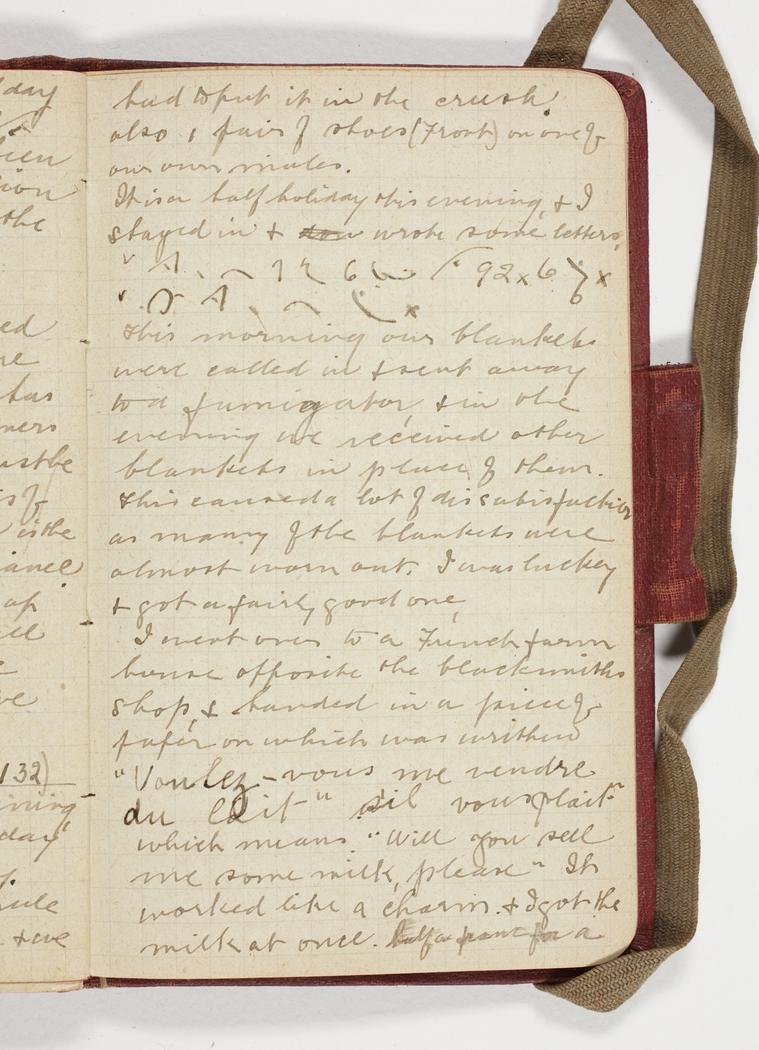 had to put it in the crush
also 1 pair of shoes (Front) on one of
our own mules.
It is a half holiday this evening, & I
stayed in & wrote some letters.
This morning our blankets
were called in & sent away
to a fumigator, & in the
evening we received other
blankets in place of them.
This caused a lot of dissatisfaction
as many of the blankets were
almost worn out. I was lucky
& got a fairly good one,
I went over to a French farm
house opposite the blacksmiths
shop, & handed in a piece of
paper on which was written
"Voulez-vous me vendre
du lait" s'il vous plait"
which means "Will you sell
me some milk, please" It
worked like a charm. & I got the
milk at once. half a franc for a
day
been
tion
the
ed
has
ners
must be
is the
iance
up
132)
day
& we